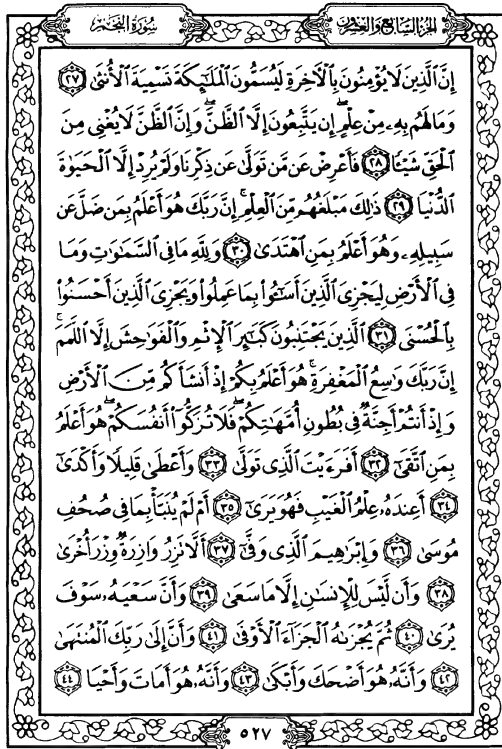 الجزء السابع والعشرون
سورة النجم
إِنَّ ٱلَّذِينَ لَا يُؤْمِنُونَ بِٱلْـَٔاخِرَةِ لَيُسَمُّونَ ٱلْمَلَـٰٓئِكَةَ تَسْمِيَةَ ٱلْأُنثَىٰ ٢٧
وَمَا لَهُم بِهِۦ مِنْ عِلْمٍ ۖ إِن يَتَّبِعُونَ إِلَّا ٱلظَّنَّ ۖ وَإِنَّ ٱلظَّنَّ لَا يُغْنِى مِنَ
ٱلْحَقِّ شَيْـًٔا ٢٨ فَأَعْرِضْ عَن مَّن تَوَلَّىٰ عَن ذِكْرِنَا وَلَمْ يُرِدْ إِلَّا ٱلْحَيَوٰةَ
ٱلدُّنْيَا ٢٩ ذَٰلِكَ مَبْلَغُهُم مِّنَ ٱلْعِلْمِ ۚ إِنَّ رَبَّكَ هُوَ أَعْلَمُ بِمَن ضَلَّ عَن
سَبِيلِهِۦ وَهُوَ أَعْلَمُ بِمَنِ ٱهْتَدَىٰ ٣٠ وَلِلَّهِ مَا فِى ٱلسَّمَـٰوَٰتِ وَمَا
فِى ٱلْأَرْضِ لِيَجْزِىَ ٱلَّذِينَ أَسَـٰٓـُٔوا۟ بِمَا عَمِلُوا۟ وَيَجْزِىَ ٱلَّذِينَ أَحْسَنُوا۟
بِٱلْحُسْنَى ٣١ ٱلَّذِينَ يَجْتَنِبُونَ كَبَـٰٓئِرَ ٱلْإِثْمِ وَٱلْفَوَٰحِشَ إِلَّا ٱللَّمَمَ ۚ
إِنَّ رَبَّكَ وَٰسِعُ ٱلْمَغْفِرَةِ ۚ هُوَ أَعْلَمُ بِكُمْ إِذْ أَنشَأَكُم مِّنَ ٱلْأَرْضِ
وَإِذْ أَنتُمْ أَجِنَّةٌ فِى بُطُونِ أُمَّهَـٰتِكُمْ ۖ فَلَا تُزَكُّوٓا۟ أَنفُسَكُمْ ۖ هُوَ أَعْلَمُ
بِمَنِ ٱتَّقَىٰٓ ٣٢ أَفَرَءَيْتَ ٱلَّذِى تَوَلَّىٰ ٣٣ وَأَعْطَىٰ قَلِيلًا وَأَكْدَىٰٓ
٣٤ أَعِندَهُۥ عِلْمُ ٱلْغَيْبِ فَهُوَ يَرَىٰٓ ٣٥ أَمْ لَمْ يُنَبَّأْ بِمَا فِى صُحُفِ
مُوسَىٰ ٣٦ وَإِبْرَٰهِيمَ ٱلَّذِى وَفَّىٰٓ ٣٧ أَلَّا تَزِرُ وَازِرَةٌ وِزْرَ أُخْرَىٰ
٣٨ وَأَن لَّيْسَ لِلْإِنسَـٰنِ إِلَّا مَا سَعَىٰ ٣٩ وَأَنَّ سَعْيَهُۥ سَوْفَ
يُرَىٰ ٤٠ ثُمَّ يُجْزَىٰهُ ٱلْجَزَآءَ ٱلْأَوْفَىٰ ٤١ وَأَنَّ إِلَىٰ رَبِّكَ ٱلْمُنتَهَىٰ
٤٢ وَأَنَّهُۥ هُوَ أَضْحَكَ وَأَبْكَىٰ ٤٣ وَأَنَّهُۥ هُوَ أَمَاتَ وَأَحْيَا ٤٤
٥٢٧